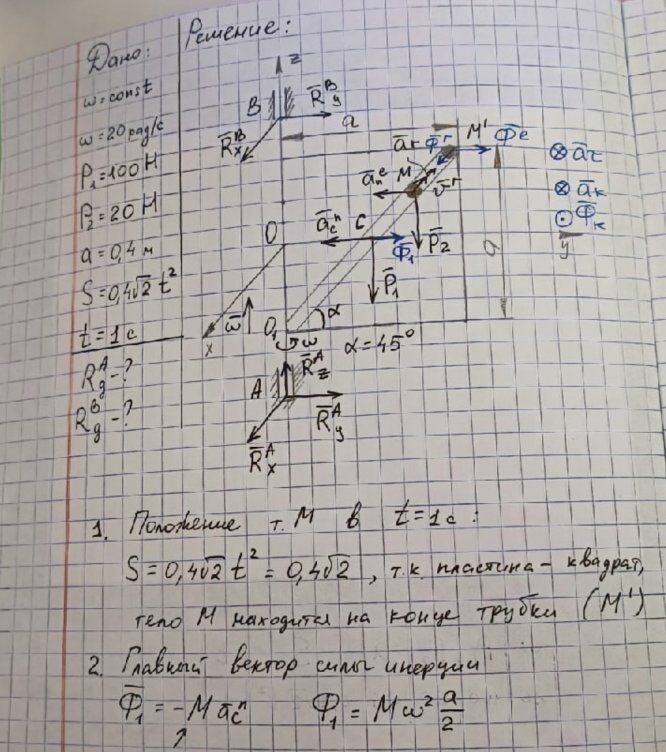 Дано:
ω = const
ω = 20 рад/с
P₁ = 100 Н
P₂ = 20 Н
a = 0,4 м
S = 0,4√2 t²
t = 1 с
R_y^A - ?
R_y^B - ?
Решение:
z
B
R̄_y^B
R̄_x^B
a
ā_r Φ̄^r M' Φ̄^e
ā_n^e M v̄^r
⊗ ā_τ
⊗ ā_k
⊙ Φ̄_k
y
O
ā_c^n C Φ̄₁ P̄₂
P̄₁
a
x
ω̄
O₁
α
ω
α = 45°
A
R̄_z^A
R̄_y^A
R̄_x^A
1. Положение т. М в t = 1 с :
S = 0,4√2 t² = 0,4√2 , т.к. пластина - квадрат,
тело М находится на конце трубки (М')
2. Главный вектор силы инерции
Φ̄₁ = -M ā_c^n Φ₁ = M ω² a/2